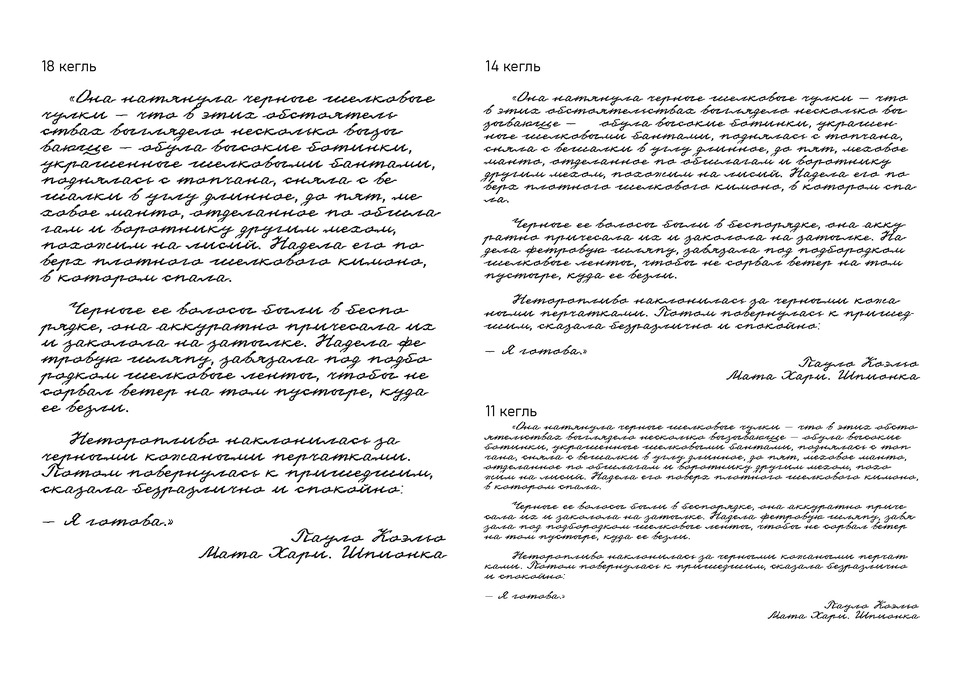 18 кегль
«Она натянула черные шелковые
чулки — что в этих обстоятель
ствах выглядело несколько вызы
вающе — обула высокие ботинки,
украшенные шелковыми бантами,
поднялась с топчана, сняла с ве
шалки в углу длинное, до пят, ме
ховое манто, отделанное по обшла
гам и воротнику другим мехом,
похожим на лисий. Надела его по
верх плотного шелкового кимоно,
в котором спала.
Черные ее волосы были в беспо
рядке, она аккуратно причесала их
и заколола на затылке. Надела фе
тровую шляпу, завязала под подбо
родком шелковые ленты, чтобы не
сорвал ветер на том пустыре, куда
ее везли.
Неторопливо наклонилась за
черными кожаными перчатками.
Потом повернулась к пришедшим,
сказала безразлично и спокойно:
— Я готова.»
Пауло Коэльо
Мата Хари. Шпионка
14 кегль
«Она натянула черные шелковые чулки — что
в этих обстоятельствах выглядело несколько вы
зывающе — обула высокие ботинки, украшен-
ные шелковыми бантами, поднялась с топчана,
сняла с вешалки в углу длинное, до пят, меховое
манто, отделанное по обшлагам и воротнику
другим мехом, похожим на лисий. Надела его по
верх плотного шелкового кимоно, в котором спа
ла.
Черные ее волосы были в беспорядке, она акку
ратно причесала их и заколола на затылке. На
дела фетровую шляпу, завязала под подбородком
шелковые ленты, чтобы не сорвал ветер на том
пустыре, куда ее везли.
Неторопливо наклонилась за черными кожа
ными перчатками. Потом повернулась к пришед-
шим, сказала безразлично и спокойно:
— Я готова.»
Пауло Коэльо
Мата Хари. Шпионка
11 кегль
«Она натянула черные шелковые чулки — что в этих обсто
ятельствах выглядело несколько вызывающе — обула высокие
ботинки, украшенные шелковыми бантами, поднялась с топ
чана, сняла с вешалки в углу длинное, до пят, меховое манто,
отделанное по обшлагам и воротнику другим мехом, похо
жим на лисий. Надела его поверх плотного шелкового кимоно,
в котором спала.
Черные ее волосы были в беспорядке, она аккуратно приче
сала их и заколола на затылке. Надела фетровую шляпу, завя
зала под подбородком шелковые ленты, чтобы не сорвал ветер
на том пустыре, куда ее везли.
Неторопливо наклонилась за черными кожаными перчат
ками. Потом повернулась к пришедшим, сказала безразлично
и спокойно:
— Я готова.»
Пауло Коэльо
Мата Хари. Шпионка